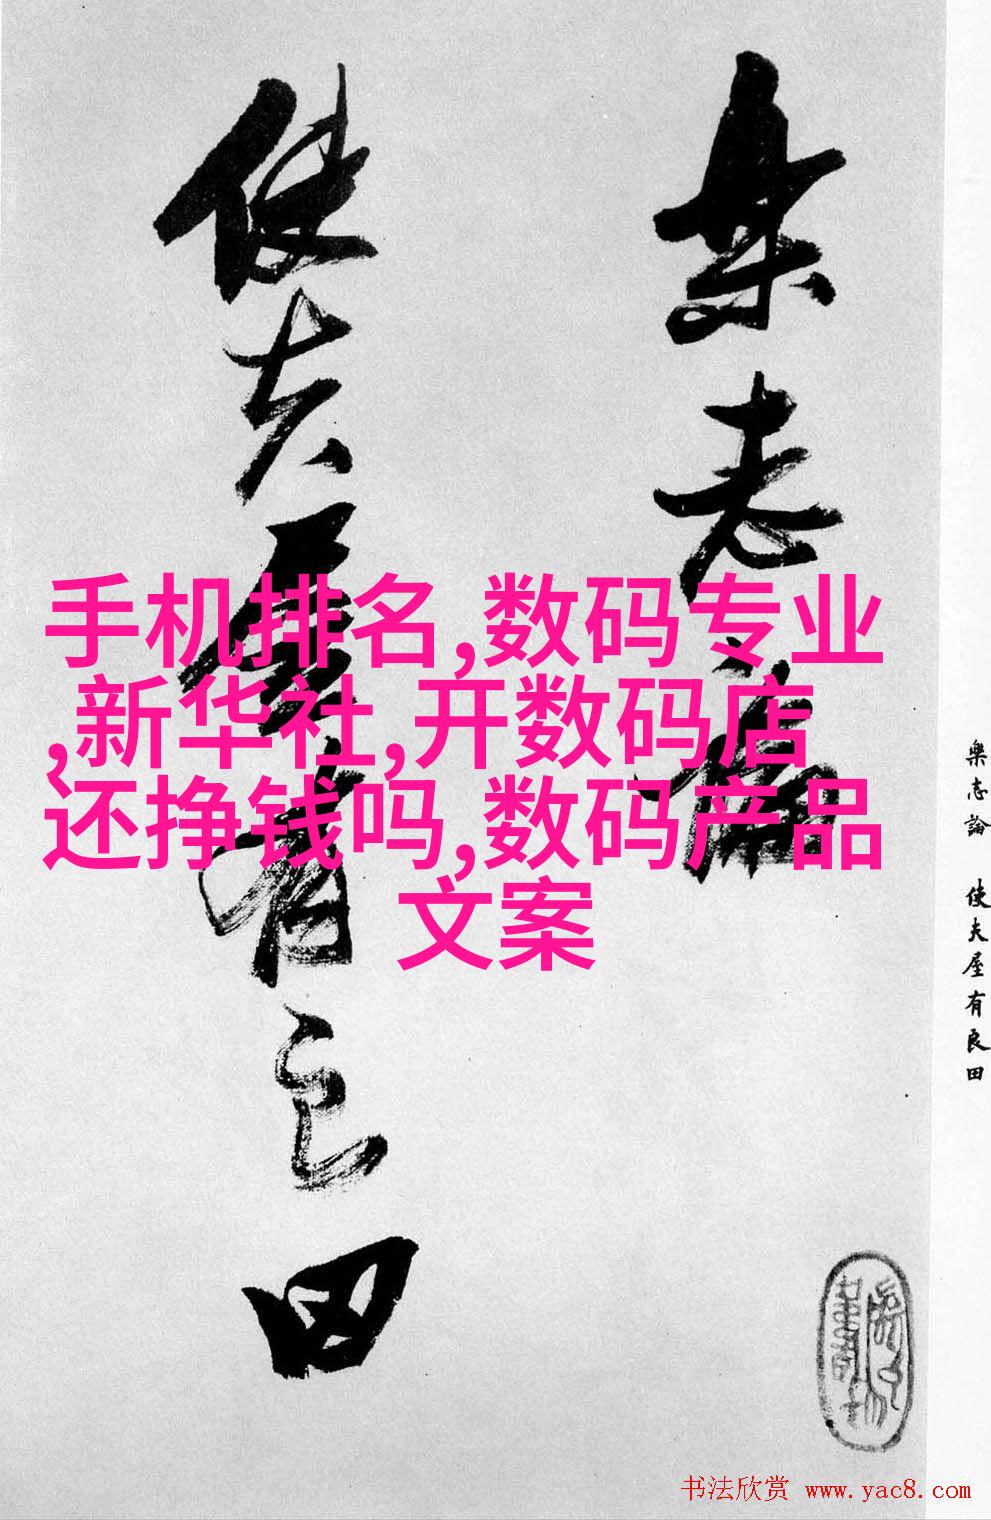 樂志論
使夫屋有良田
手机排名,数码专业
,新华社,开数码店
还挣钱吗,数码产品
文案
樂志論 使夫屋有良田
书法欣赏 www.yac8.com